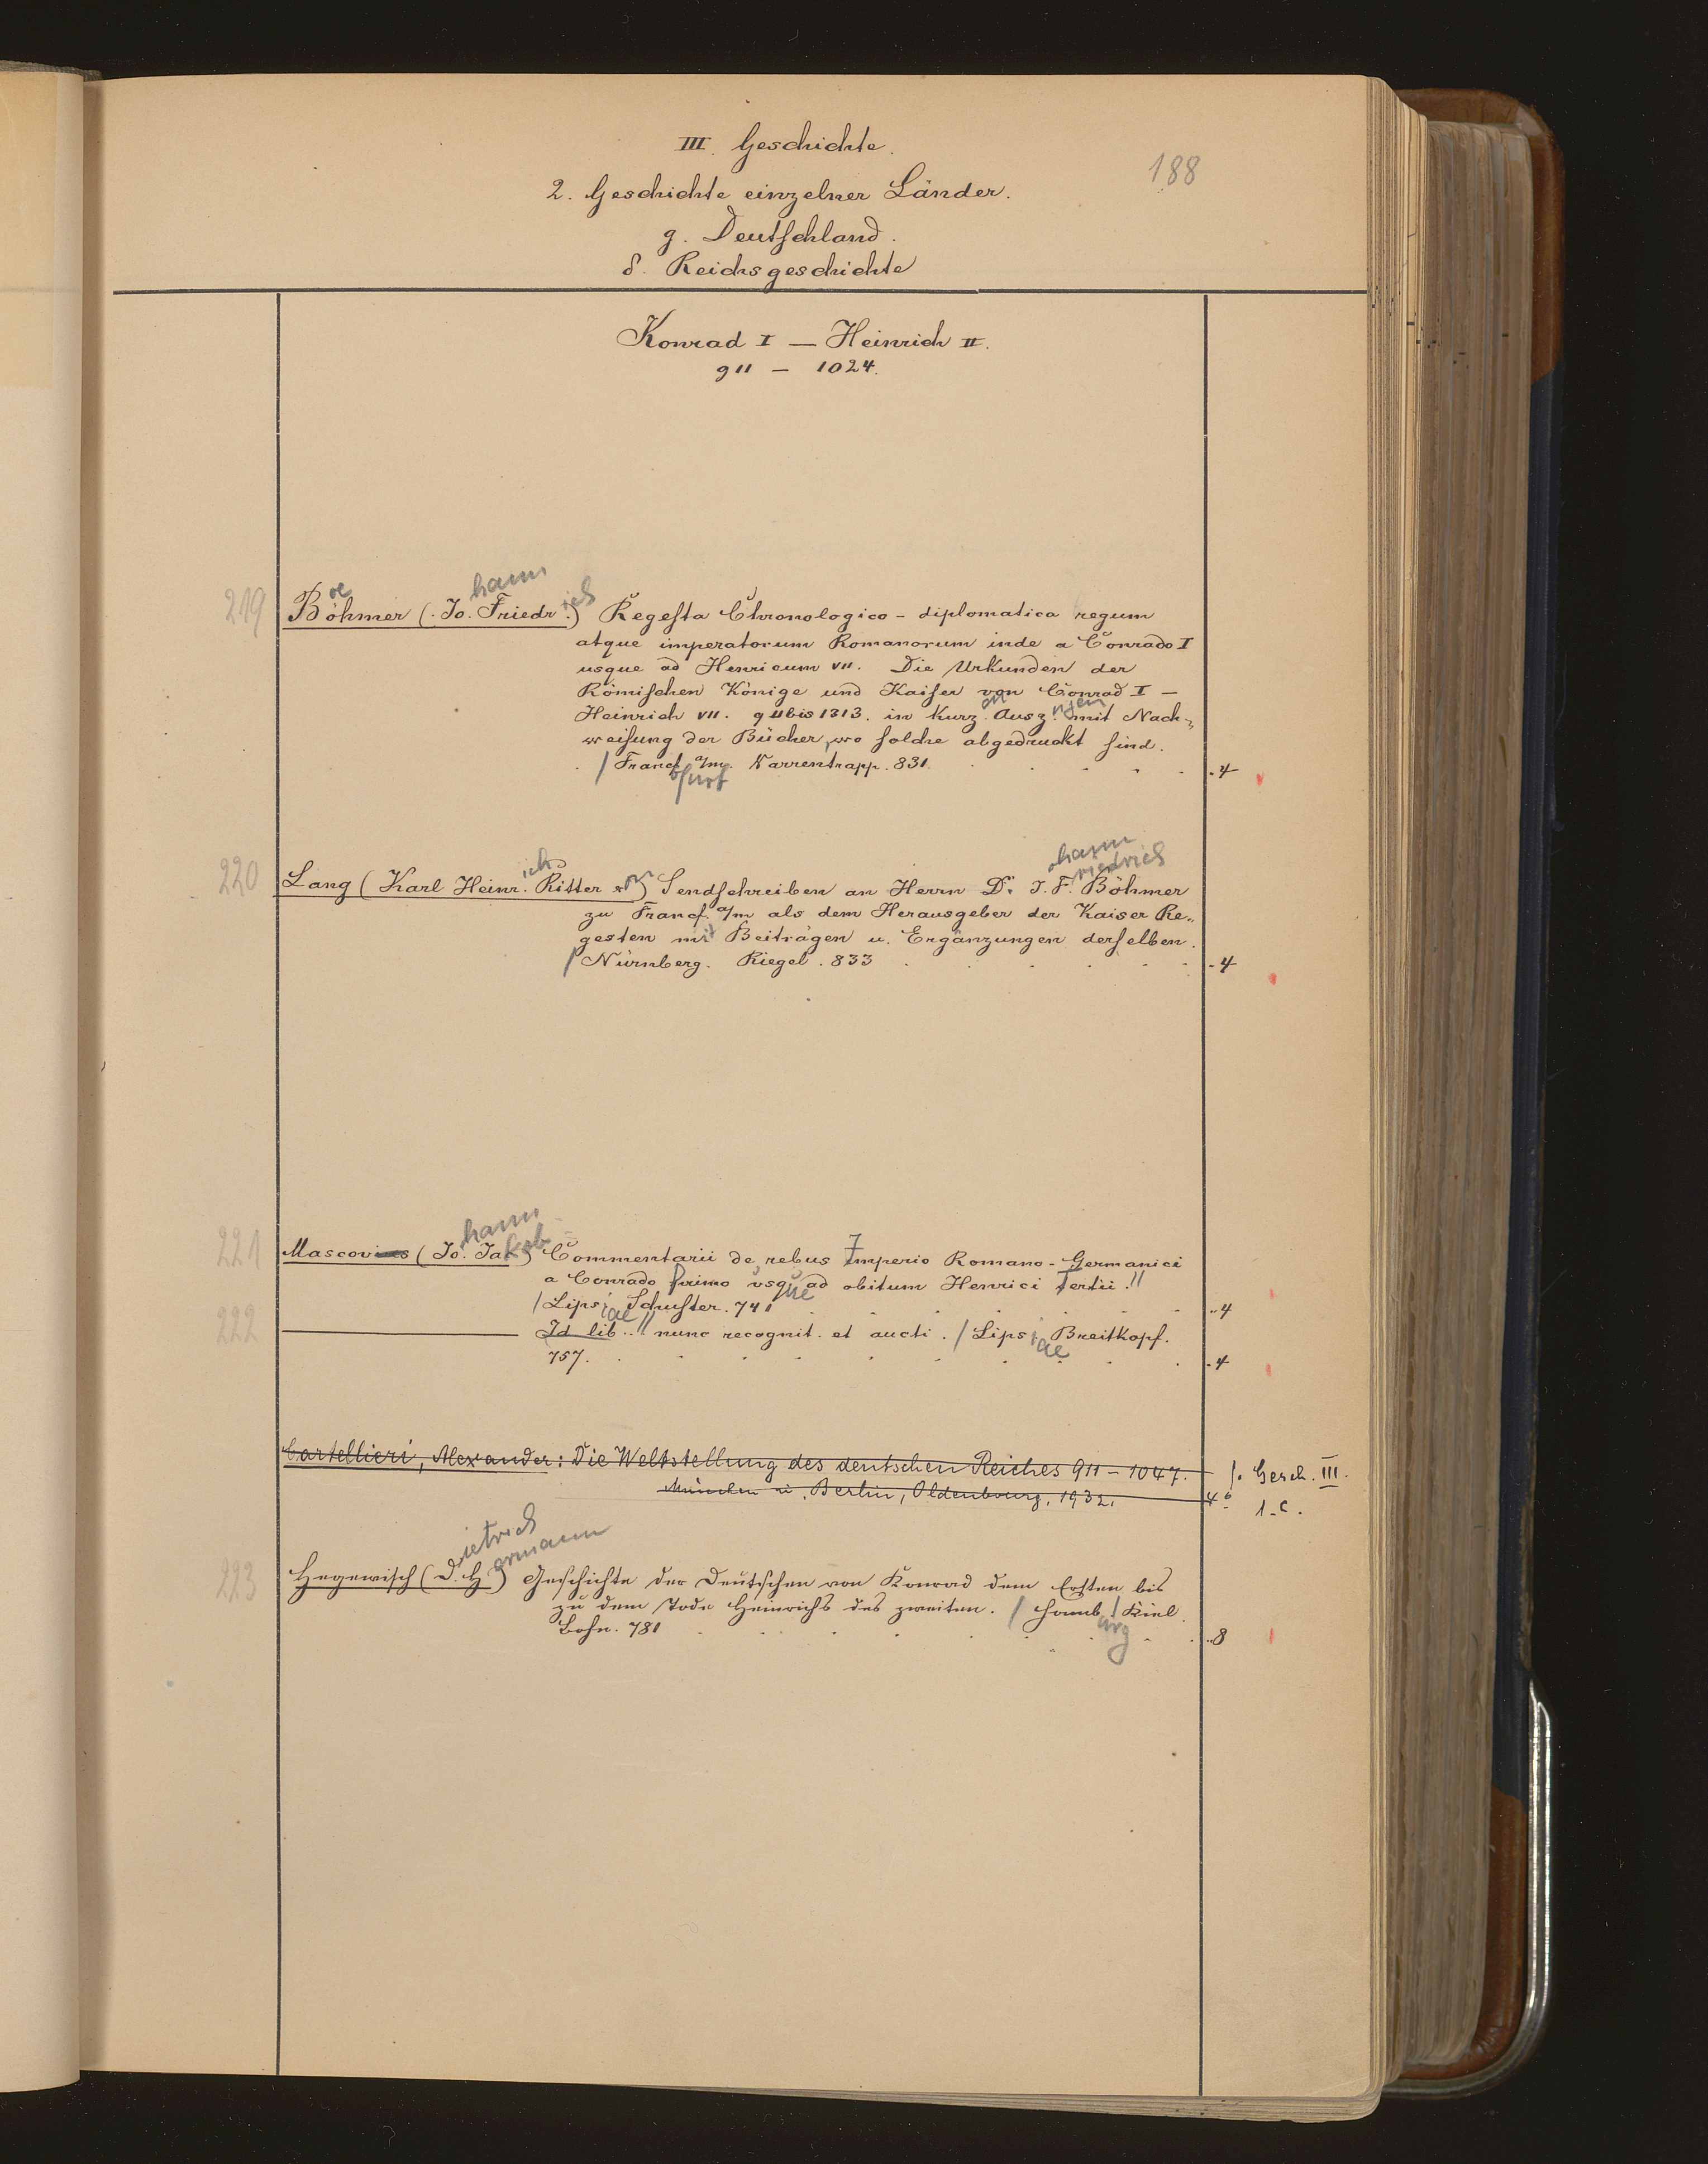 III. Geschichte.
188
2. Geschichte einzelner Länder.
g. Deutschland.
δ. Reichsgeschichte
Konrad I — Heinrich II.
911 — 1024.
219 Böhmer (Jo.hann Friedr.ich) Regesta Chronologico-diplomatica regum
atque imperatorum Romanorum inde a Conrado I
usque ad Henricum VII. Die Urkunden der
Römischen Könige und Kaiser von Conrad I —
Heinrich VII. 911 bis 1313. in kurz.en Ausz.ügen mit Nach-
weisung der Bücher, wo solche abgedruckt sind.
/ Francf.furt a/m. Varrentrapp. 831. 4
220 Lang (Karl Heinr.ich Ritter von) Sendschreiben an Herrn Dr. J.ohann F.riedrich Böhmer
zu Francf. a/m als dem Herausgeber der Kaiser Re-
gesten mit Beiträgen u. Ergänzungen derselben.
/ Nürnberg. Riegel. 833 4
221 Mascovius (Jo.hann Jakob) Commentarii de rebus Imperio Romano-Germanici
a Conrado Primo usque ad obitum Henrici Tertii. //
/ Lipsiae Schuster. 741 4
222 — Id lib.. // nunc recognit. et aucti. / Lipsiae Breitkopf.
757. 4
Cartellieri, Alexander: Die Weltstellung des deutschen Reiches 911–1047. /. Gesch. III.
München u. Berlin, Oldenbourg, 1932. 4° 1.c.
223 Hegewisch (D.ietrich H.ermann) Geschichte der Deutschen von Konrad dem Ersten bis
zu dem Tode Heinrichs des zweiten. / Hamburg / Kiel
Bohn. 781 8